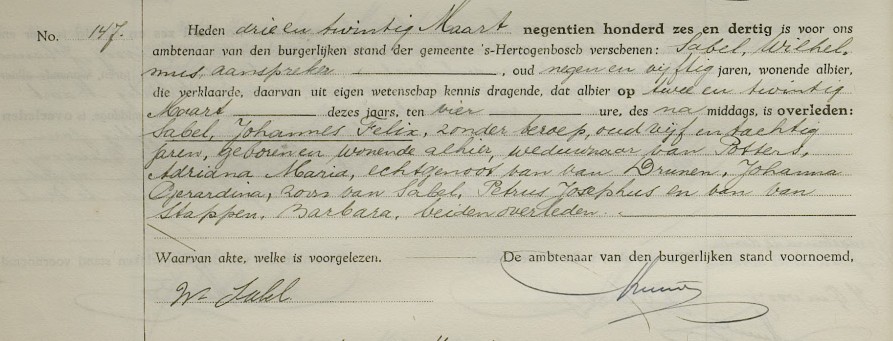 No. 147.
Heden drie en twintig Maart negentien honderd zes en dertig is voor ons
ambtenaar van den burgerlijken stand der gemeente 's-Hertogenbosch verschenen: Sabel, Wilhel-
mus, aanspreker, oud negen en vijftig jaren, wonende alhier,
die verklaarde, daarvan uit eigen wetenschap kennis dragende, dat alhier op twee en twintig
Maart dezes jaars, ten vier ure, des na middags, is overleden:
Sabel, Johannes Felix, zonder beroep, oud vijf en tachtig
jaren, geboren en wonende alhier, weduwnaar van Potters,
Adriana Maria, echtgenoot van van Drunen, Johanna
Gerardina, zoon van Sabel, Petrus Josephus en van van
Stappen, Barbara, beiden overleden.
Waarvan akte, welke is voorgelezen. De ambtenaar van den burgerlijken stand voornoemd,
W. Sabel